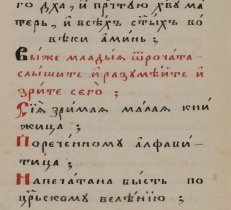 го дха, и пртую хву ма
терь, и всѣхъ ст҃ыхъ во
вѣки а҆минь;
Вы́же младыѧ ѿроча́та
слы́шите и҆ разꙋмѣ́йте и҆
зри́те сегѡ̀;
Сїѧ̀ зри́маѧ ма́лаѧ кни́
жица;
По рече́нному а҆лфави́
тица;
Напеча́тана бы́сть по
цр҃скому велѣ́нїю;